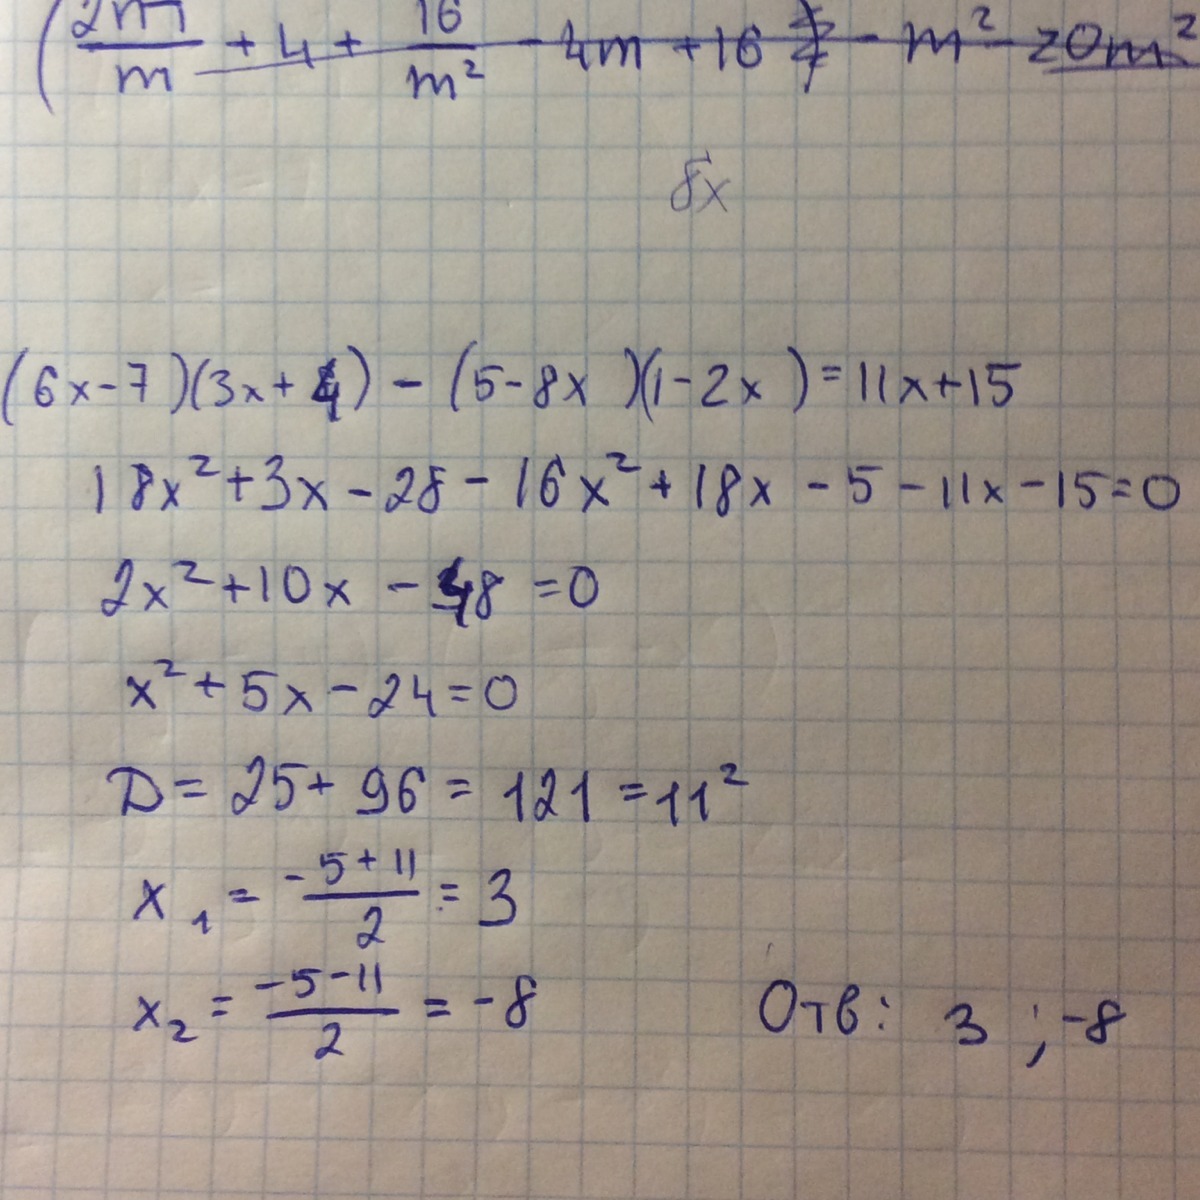 (2m/m + 4 + 16/m² - 4m + 16) - m² - 20m²
8x
(6x-7)(3x+4) - (5-8x)(1-2x) = 11x+15
18x² + 3x - 28 - 16x² + 18x - 5 - 11x - 15 = 0
2x² + 10x - 48 = 0
x² + 5x - 24 = 0
D = 25 + 96 = 121 = 11²
x₁ = (-5+11)/2 = 3
x₂ = (-5-11)/2 = -8
Отв: 3 ; -8